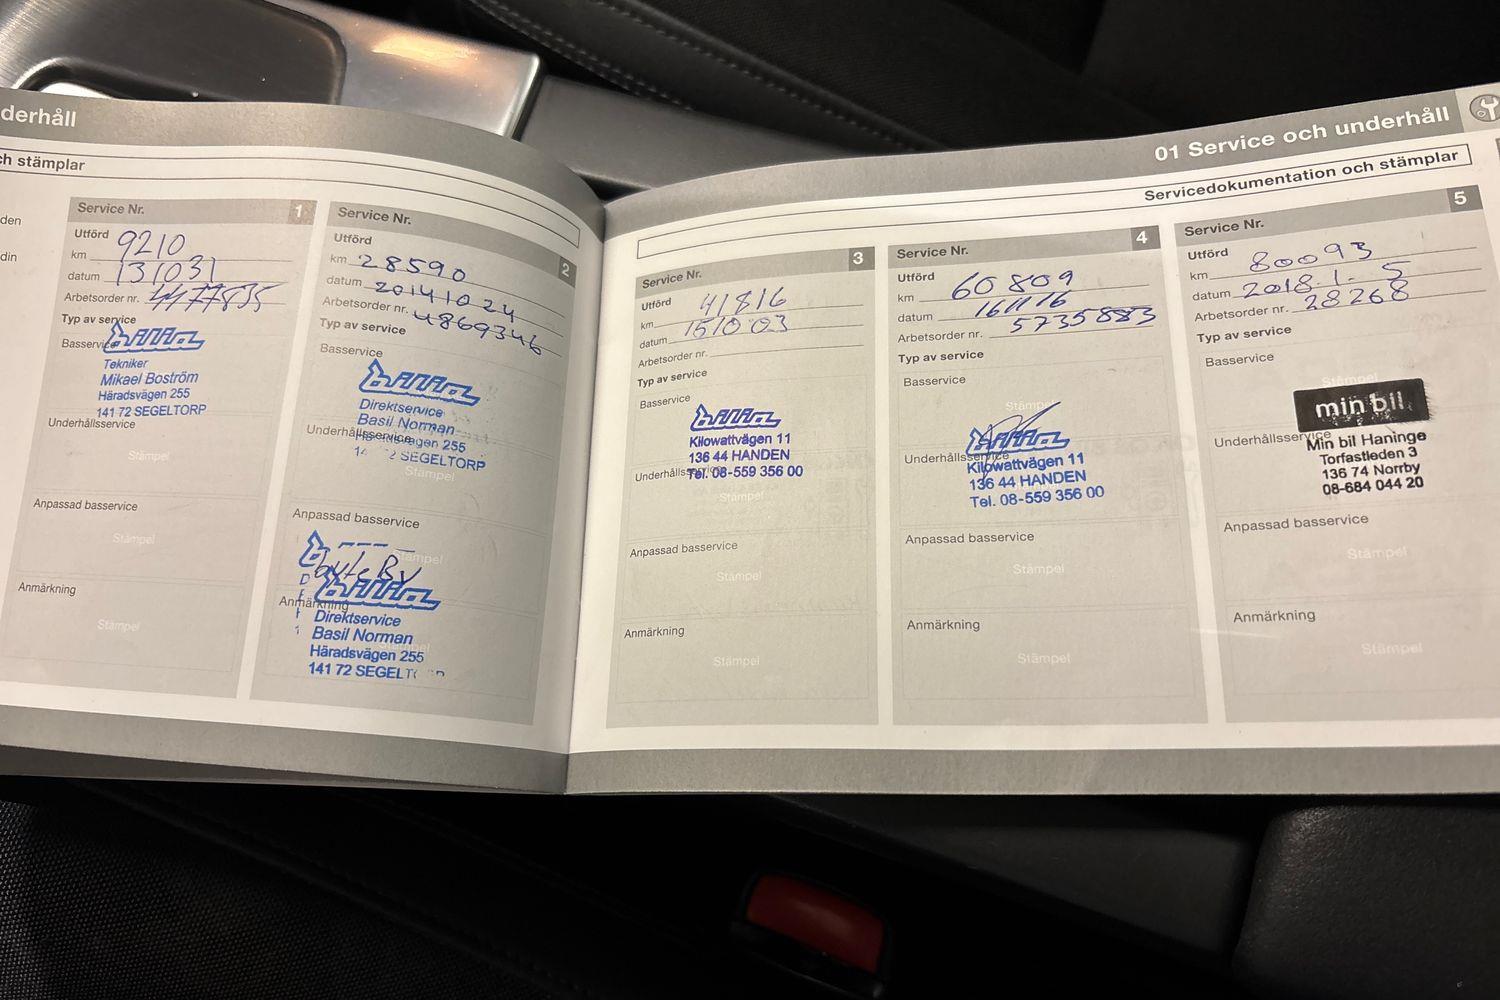 derhåll
ch stämplar
den
din
Service Nr. 1
Utförd
km 9210
datum 131031
Arbetsorder nr. 4477835
Typ av service
Basservice
bilia
Tekniker
Mikael Boström
Häradsvägen 255
141 72 SEGELTORP
Underhållsservice
Stämpel
Anpassad basservice
Stämpel
Anmärkning
Stämpel
Service Nr. 2
Utförd
km 28590
datum 20141024
Arbetsorder nr. 4869346
Typ av service
Basservice
bilia
Direktservice
Basil Norman
Underhållsservice
Häradsvägen 255
14 2 SEGELTORP
Stämpel
Anpassad basservice
Stämpel
bilia
Anmärkning
Direktservice
Basil Norman
Häradsvägen 255
141 72 SEGELTO
01 Service och underhåll
Servicedokumentation och stämplar
Service Nr. 3
Utförd
km 41816
datum 151003
Arbetsorder nr.
Typ av service
Basservice
bilia
Kilowattvägen 11
136 44 HANDEN
Underhållsservice
Tel. 08-559 356 00
Stämpel
Anpassad basservice
Stämpel
Anmärkning
Stämpel
Service Nr. 4
Utförd
km 60809
datum 161116
Arbetsorder nr. 5735883
Typ av service
Basservice
Stämpel
bilia
Underhållsservice
Kilowattvägen 11
136 44 HANDEN
Tel. 08-559 356 00
Anpassad basservice
Stämpel
Anmärkning
Stämpel
Service Nr. 5
Utförd
km 80093
datum 2018.1.5
Arbetsorder nr. 28268
Typ av service
Basservice
Stämpel
min bil
Underhållsservice
Min bil Haninge
Torfastleden 3
136 74 Norrby
08-684 044 20
Anpassad basservice
Stämpel
Anmärkning
Stämpel